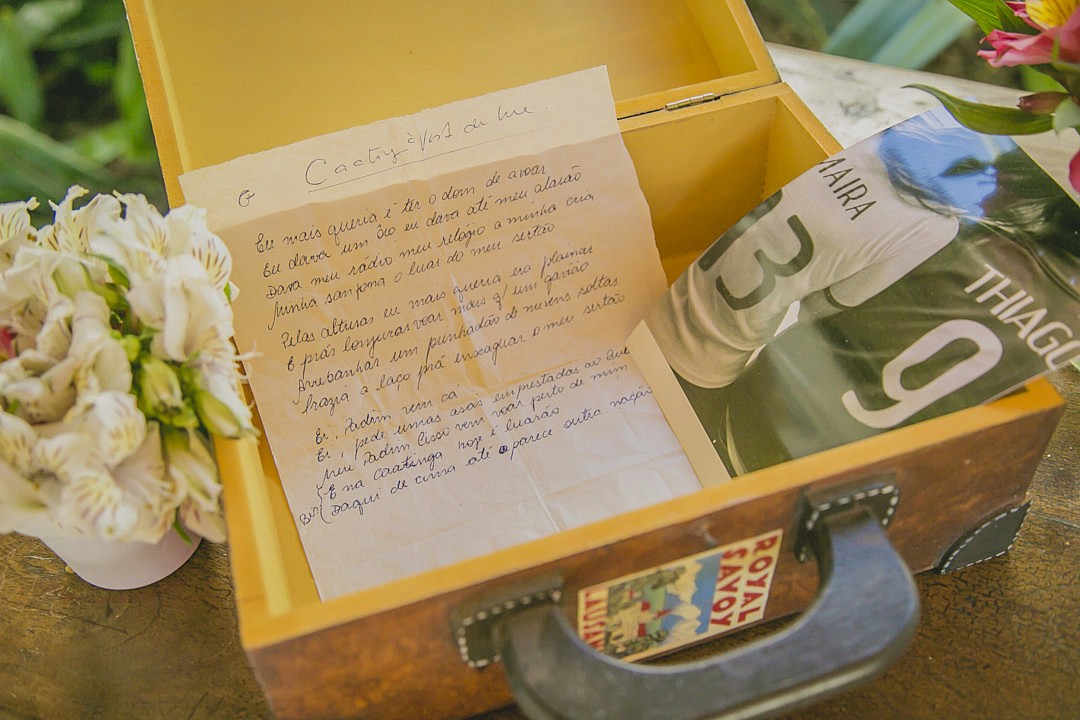 G
Eu mais queria é ter o dom de avoar
Eu dava um ôio eu dava até meu alazão
Dava meu rádio meu relógio a minha cria
Minha sanfona o luar do meu sertão
Pelas alturas eu mais queria era plainar
E prás longuras voar mais q/ um gavião
Arrebanhar um punhadão de nuvens soltas
Trazia a laço prá ensaguar o meu sertão
Ei, Padim vem cá
Ei, pede umas asas emprestadas ao
Meu Padim Ciço vem voar perto de mim
Bis { E na caatinga hoje é luarão
Daqui de cima até parece outra nação
MAIRA
3
THIAGO
9
ROYAL
SAVOY
LAUSAN